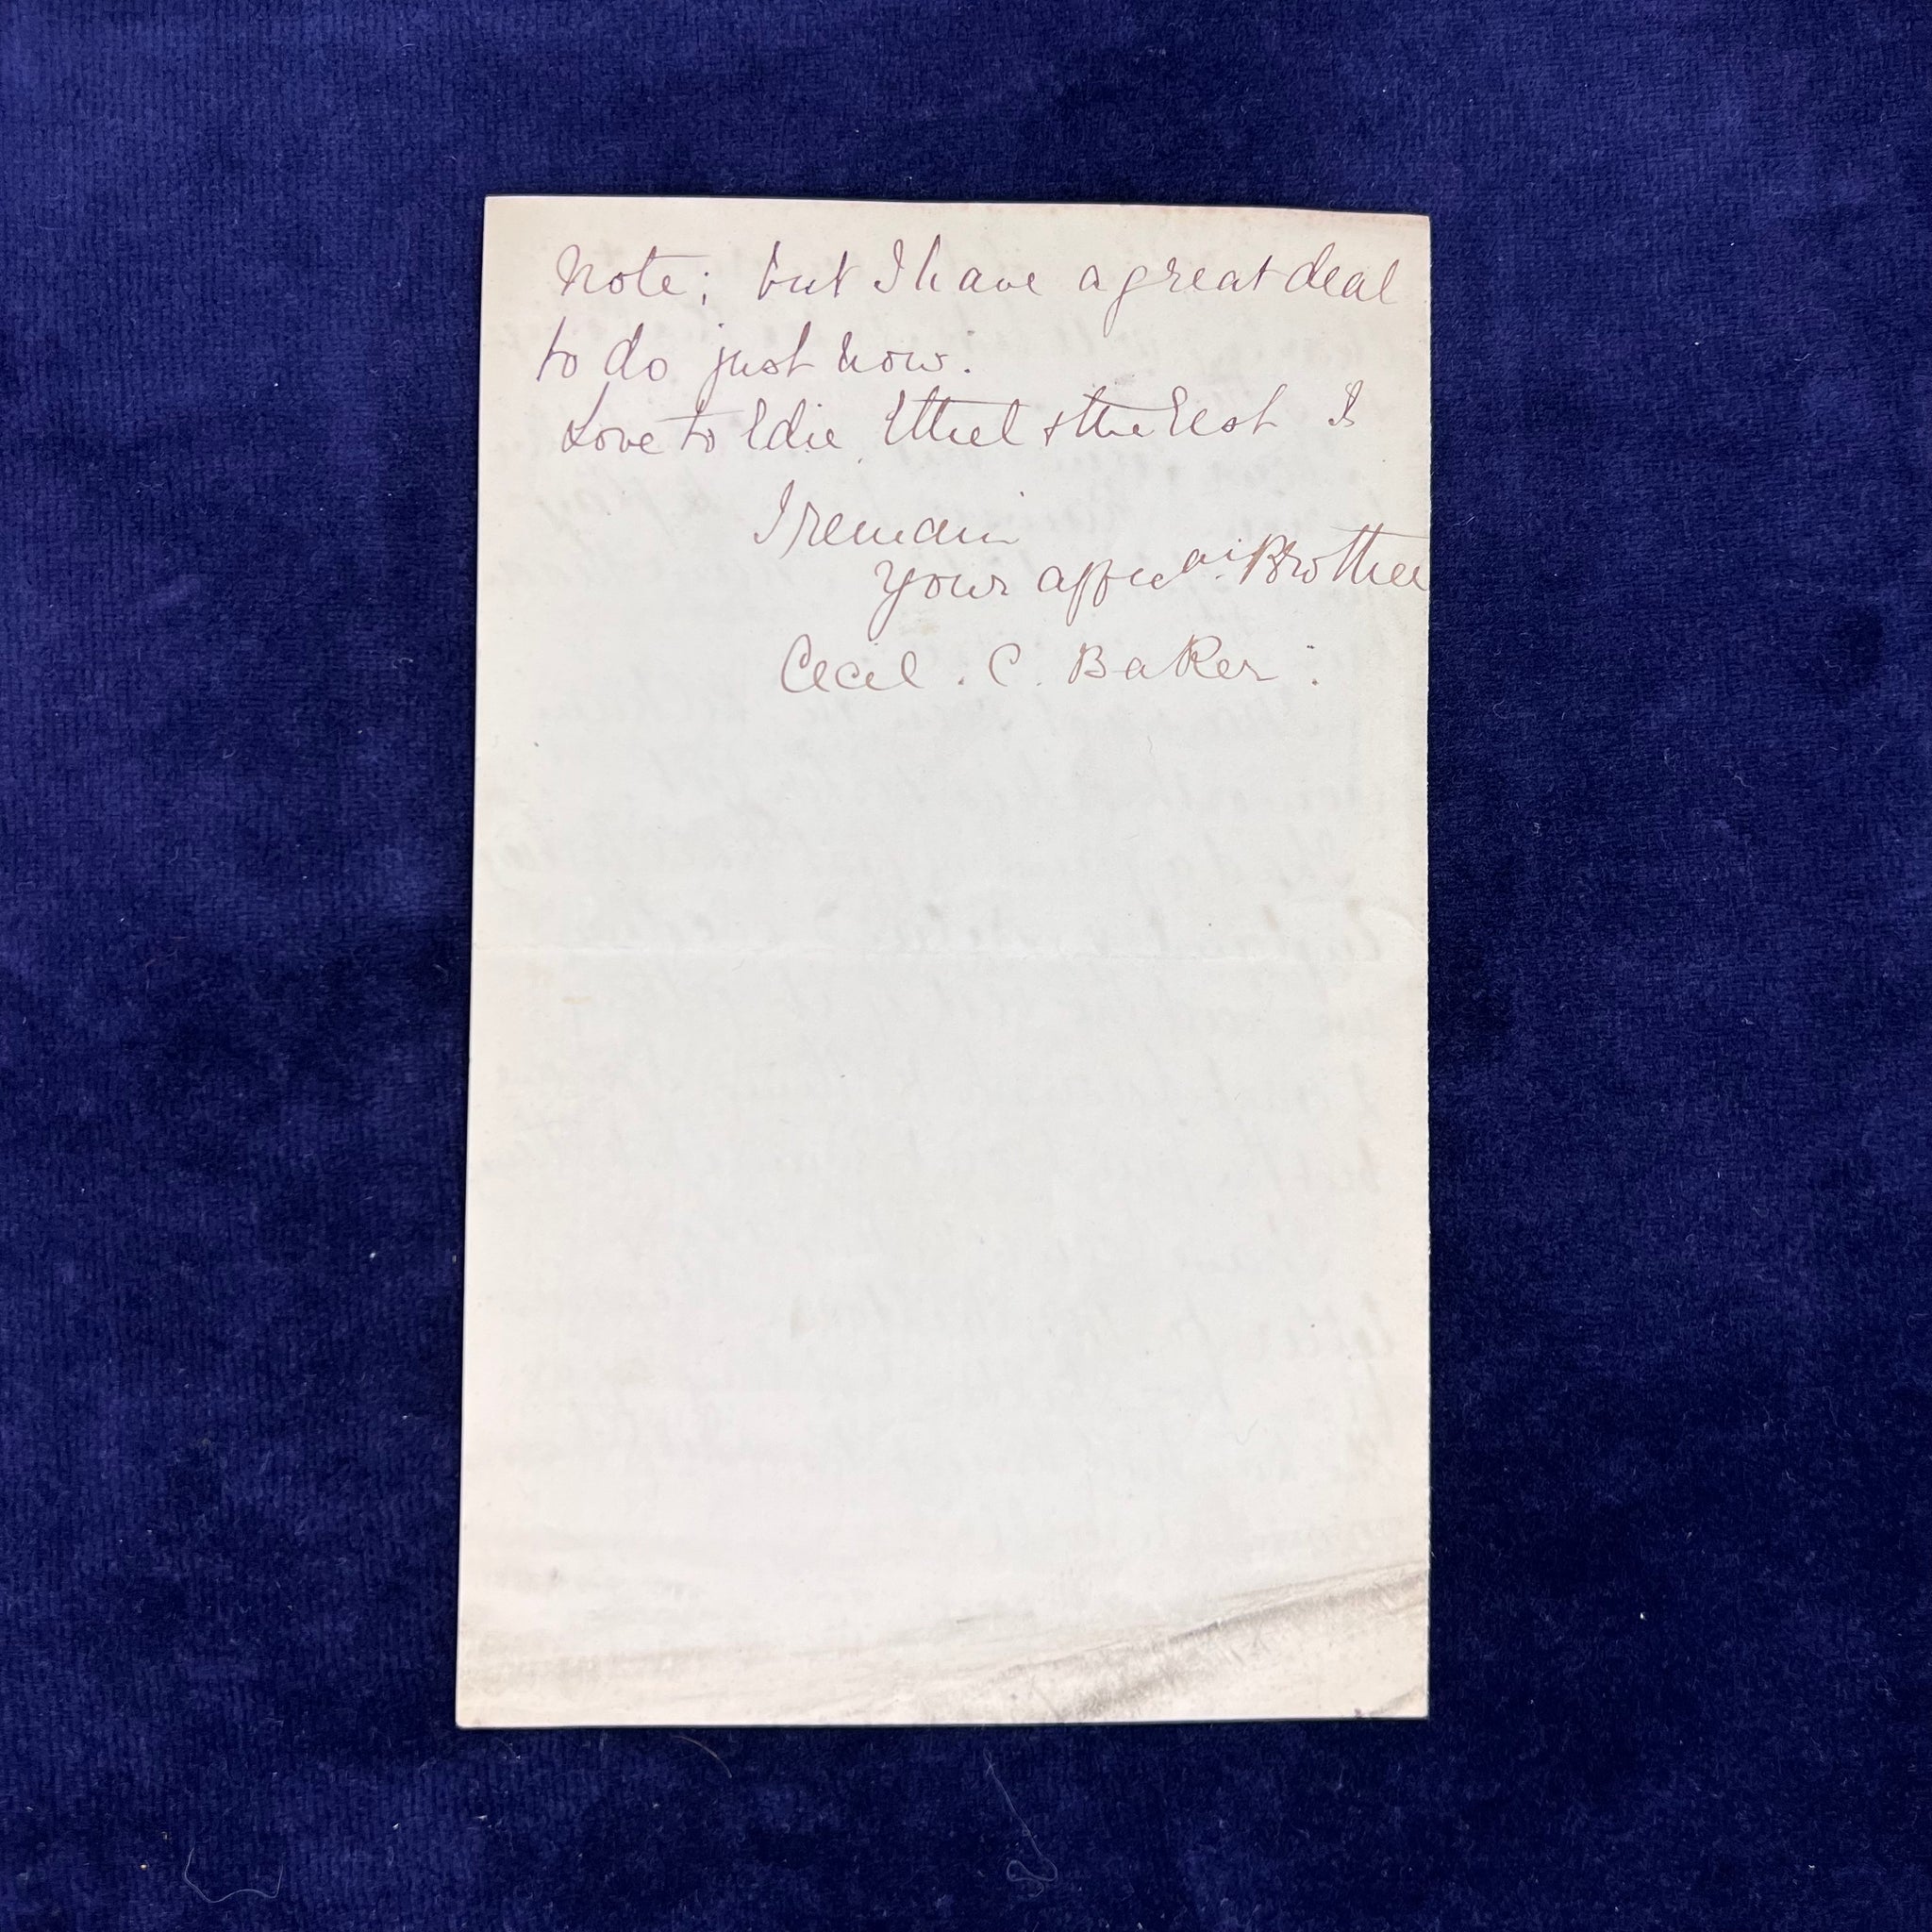 Note; but I have a great deal
to do just now.
Love to Edie Ethel & the Rest I
I remain
Your affec Brother
Cecil. C. Baker.